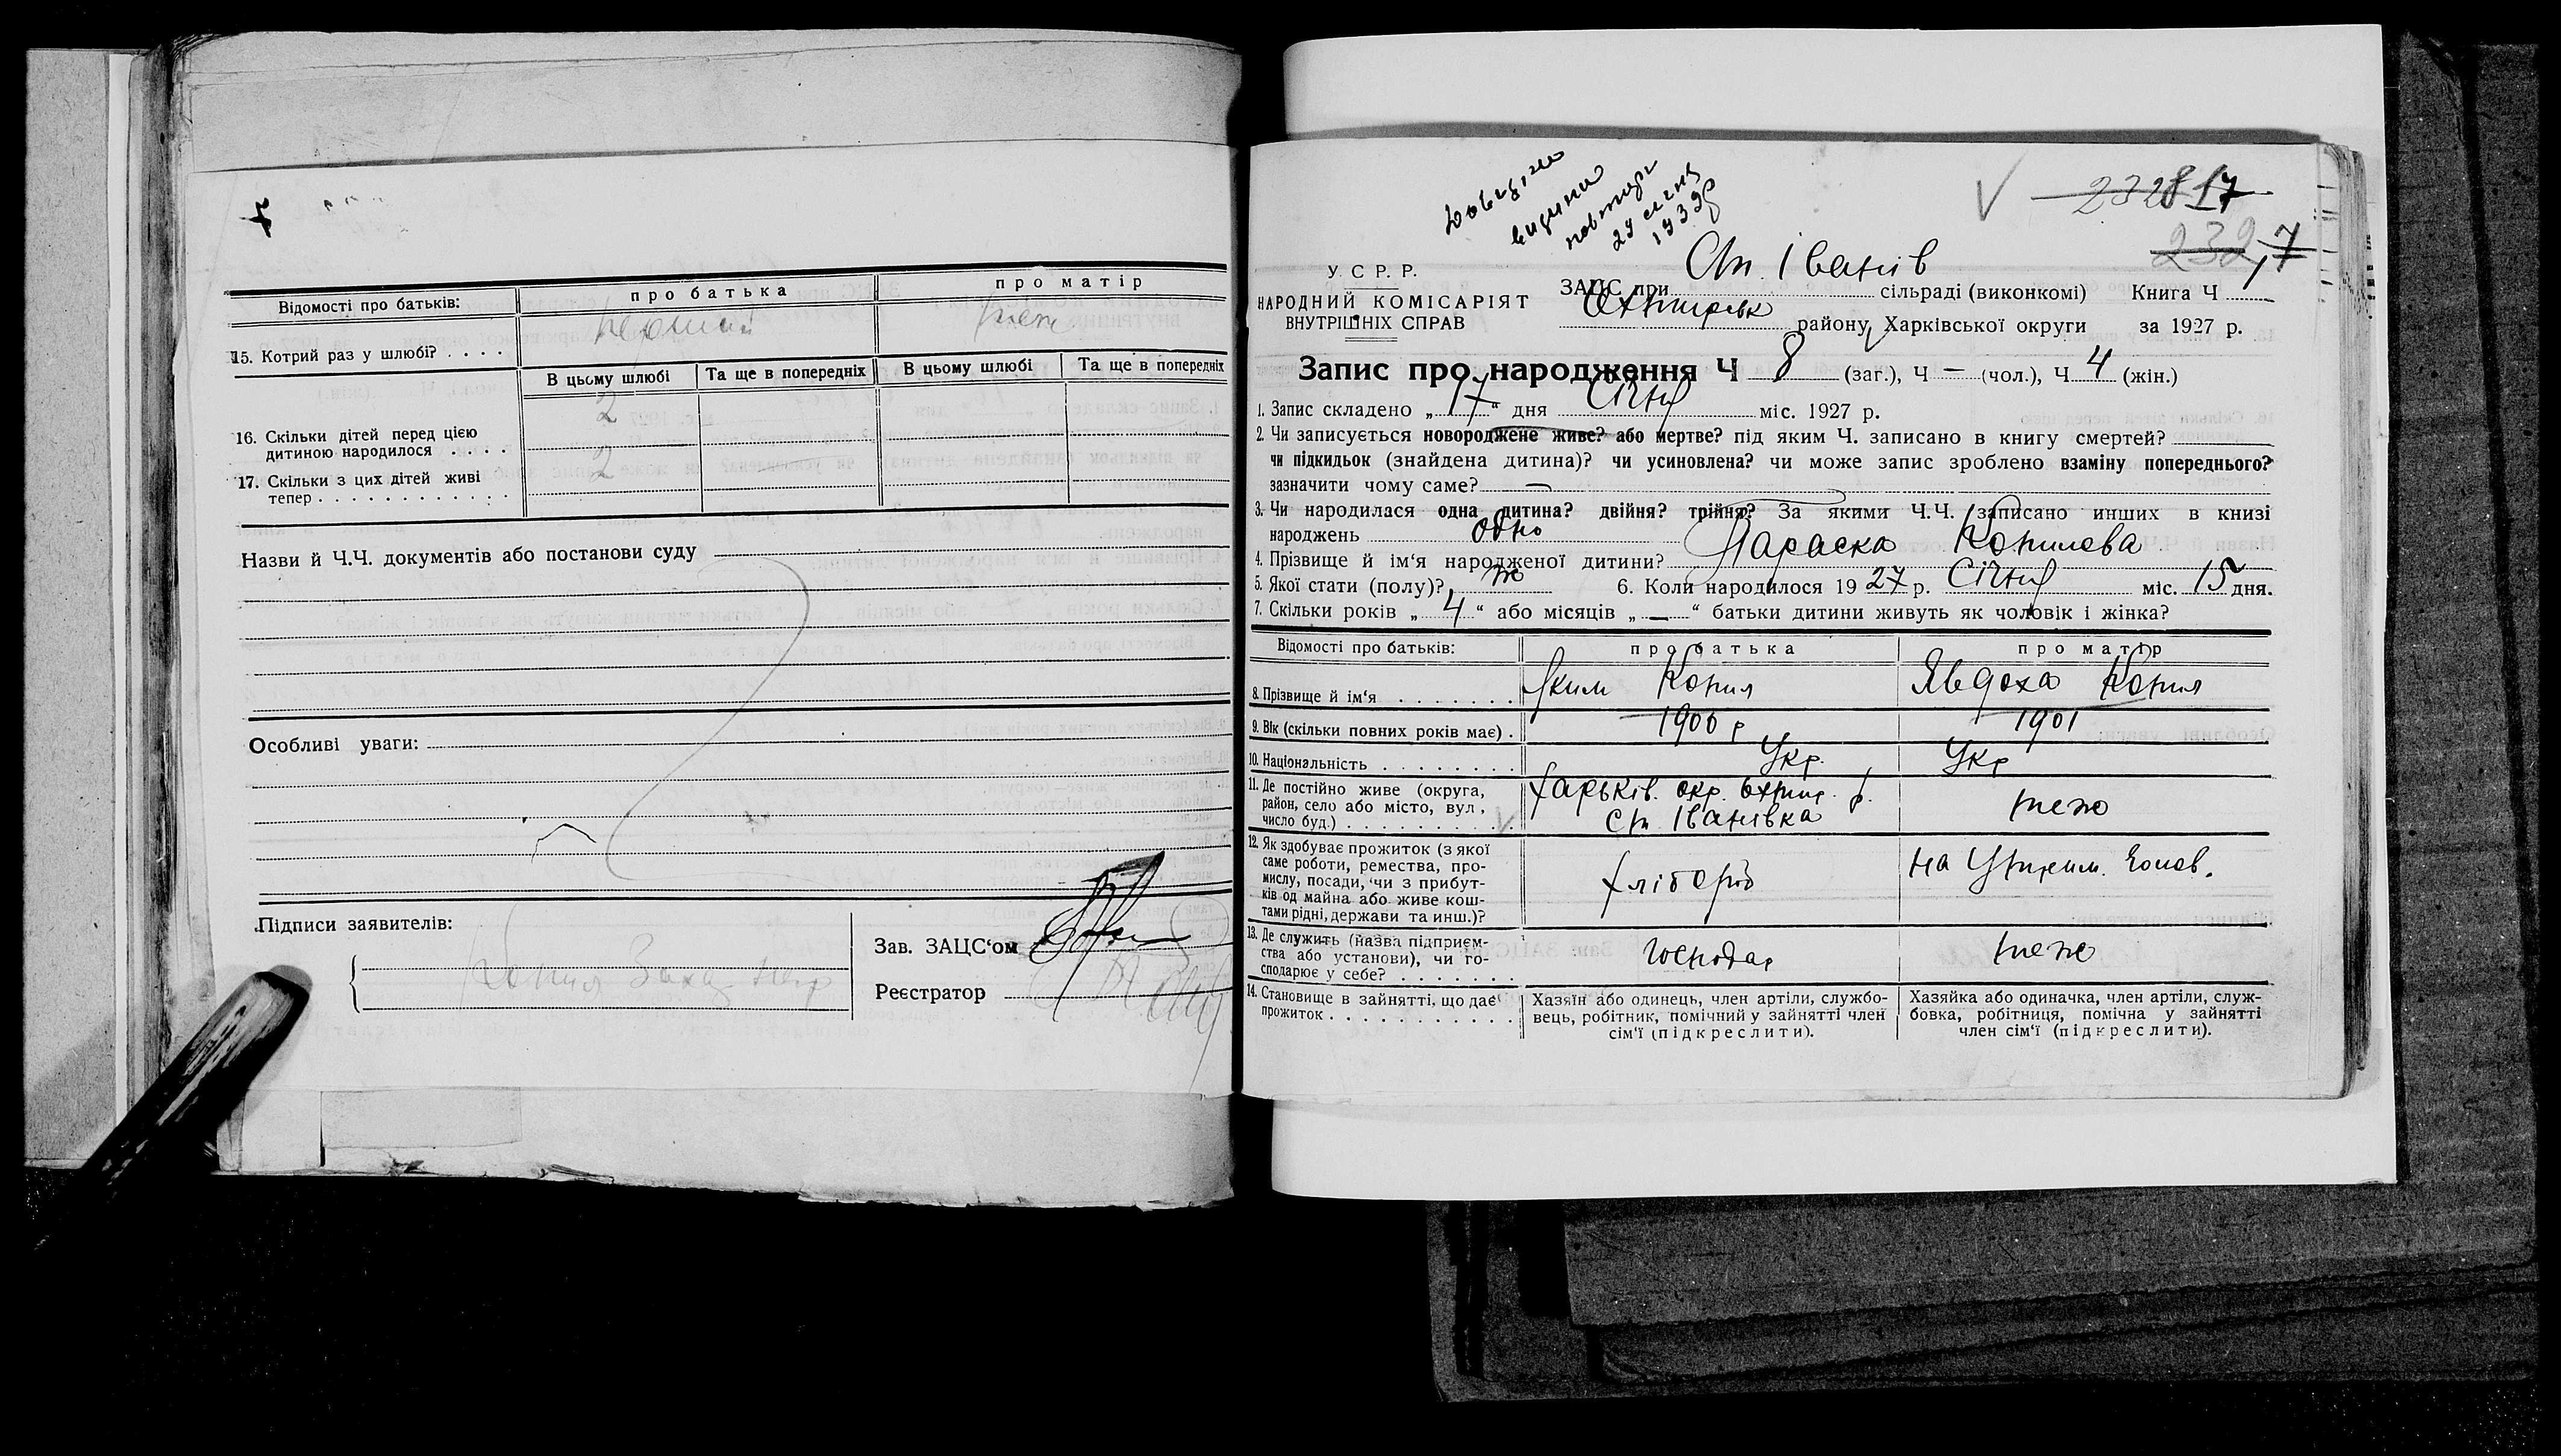 7
Відомості про батьків:
про батька
про матір
15. Котрий раз у шлюбі? . . . .
Перший
теж
В цьому шлюбі
Та ще в попередніх
В цьому шлюбі
Та ще в попередніх
16. Скільки дітей перед цією
дитиною народилося . . . .
2
17. Скільки з цих дітей живі
тепер . . . . . . . . . . . .
2
Назви й Ч.Ч. документів або постанови суду
Особливі уваги:
Підписи заявителів:
Зав. ЗАЦС‘ом
Реєстратор
Копил
23 січня
1939р
232817
232
17
У. С. Р. Р.
НАРОДНИЙ КОМІСАРІЯТ
ВНУТРІШНІХ СПРАВ
ЗАЦС при Ст. Іванів сільраді (виконкомі) Книга Ч
Охтирськ району, Харківської округи за 1927 р.
Запис про народження Ч 8 (заг.), Ч — (чол.), Ч 4 (жін.)
1. Запис складено „ 17 “ дня Січня міс. 1927 р.
2. Чи записується новороджене живе? або мертве? під яким Ч. записано в книгу смертей?
чи підкидьок (знайдена дитина)? чи усиновлена? чи може запис зроблено взаміну попереднього?
зазначити чому саме? —
3. Чи народилася одна дитина? двійня? трійня? За якими Ч.Ч. записано инших в книзі
народжень одно
4. Прізвище й ім‘я народженої дитини? Параска Копилева
5. Якої стати (полу)? ж 6. Коли народилося 1927 р. Січня міс. 15 дня.
7. Скільки років „ 4 “ або місяців „ — “ батьки дитини живуть як чоловік і жінка?
Відомості про батьків:
про батька
про матір
8. Прізвище й ім‘я . . . . . . .
Яким Копил
Явдоха Копил
9. Вік (скільки повних років має) .
1900 р
1901
10. Національність . . . . . . . .
Укр.
Укр
11. Де постійно живе (округа,
район, село або місто, вул.,
число буд.) . . . . . . . . . .
Харьків. окр. Охтир. р.
ст Іванівка
теж
12. Як здобуває прожиток (з якої
саме роботи, ремества, про-
мислу, посади, чи з прибут-
ків од майна або живе кош-
тами рідні, держави та инш.)?
хлібороб
на Утрим. Чолов.
13. Де служить (назва підприєм-
ства або установи), чи го-
сподарює у себе? . . . . . . .
Господар
теж
14. Становище в зайнятті, що дає
прожиток . . . . . . . . . . .
Хазяїн або одинець, член артіли, службо-
вець, робітник, помічний у зайнятті член
сім‘ї (підкреслити).
Хазяйка або одиначка, член артіли, служ-
бовка, робітниця, помічна у зайнятті
член сім‘ї (підкреслити).